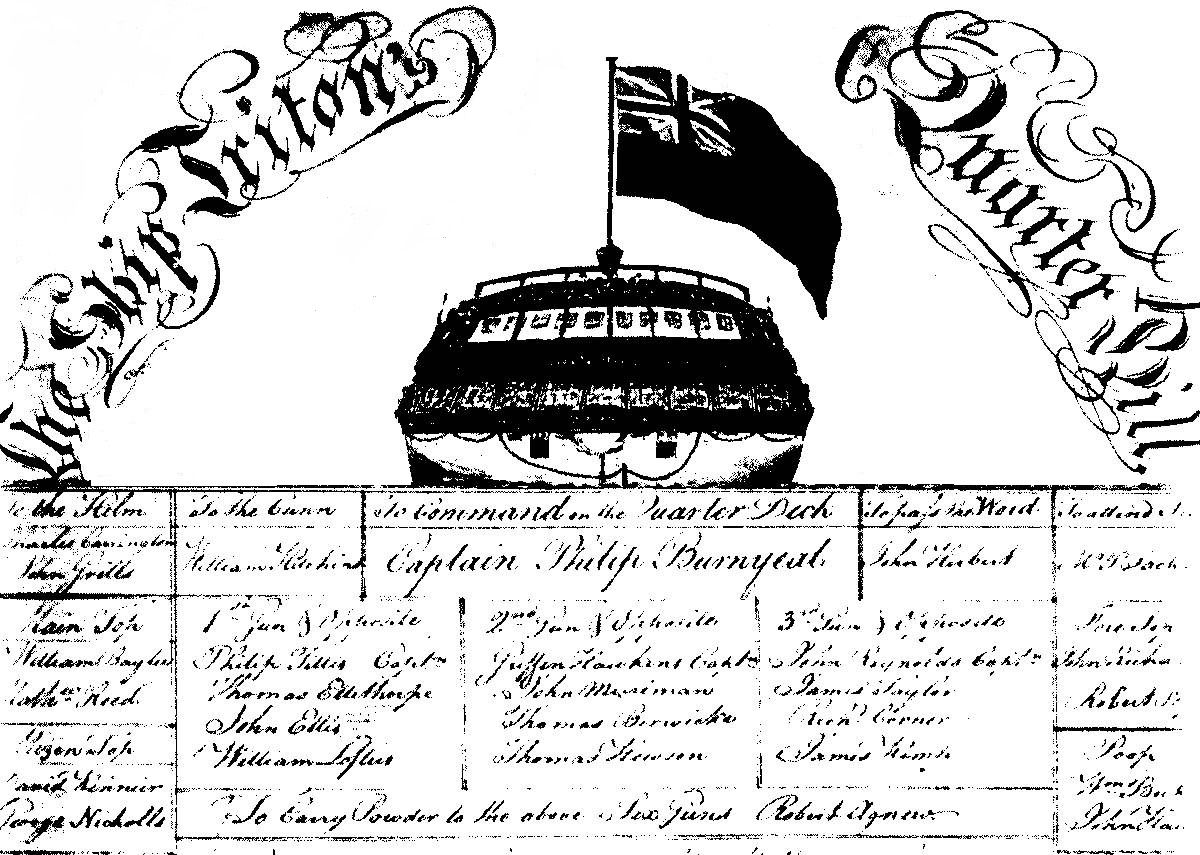 The Ship Triton's Quarter Bill
To the Helm
Charles Carrington
John Grills
To the Cunn
William Hitchins
To Command on the Quarter Deck
Captain Philip Burnyeat
To pass the Word
John Herbert
To attend
Main Top
William Bayles
Nath.ll Reed
Mizen Top
David Kinnier
George Nicholls
1st Gun & Opposite
Philip Tillis Capt.n
Thomas Ellethorpe
John Ellis
William Loftus
2nd Gun & Opposite
Griffin Hawkins Capt.n
John Merriman
Thomas Berwicke
Thomas Hewson
3rd Gun & Opposite
John Reynolds Capt.n
James Taylor
Rich.d Corner
James
To Carry Powder to the above Six Guns Robert Agnew
Fore Top
John
Robert
Poop
Wm
John